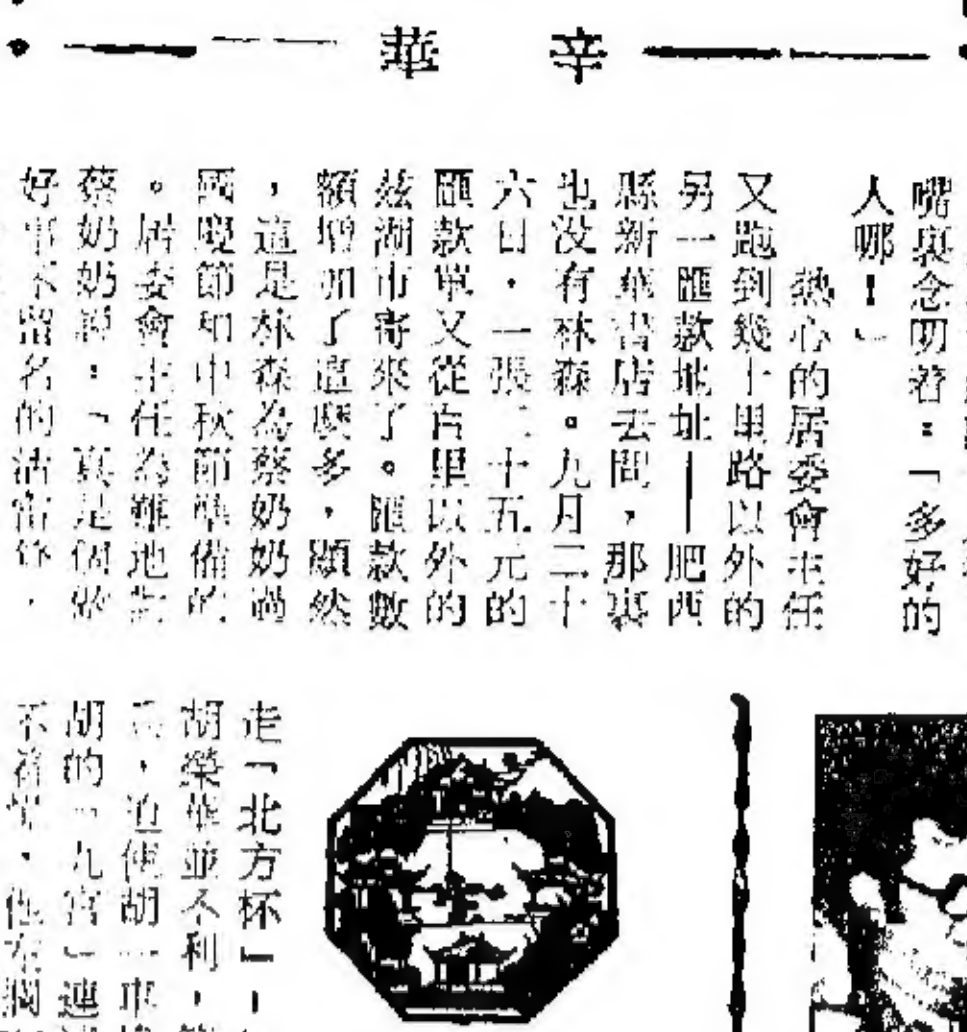 華辛
嘴裏念叨着：「多好的
人哪！」
熱心的居委會主任
又跑到幾十里路以外的
另一匯款地址——肥西
縣新華書店去問，那裏
也没有林森。九月二十
六日，一張二十五元的
匯款單又從百里以外的
蕪湖市寄來了。匯款數
額增加了這麽多，顯然
，這是林森為蔡奶奶過
國慶節和中秋節準備的
。居委會主任為難地對
蔡奶奶說：「真是個做
好事不留名的活雷鋒，
走「北方杯」
胡榮華並不利，
，迫使胡一車
胡的「九宮」連
不着